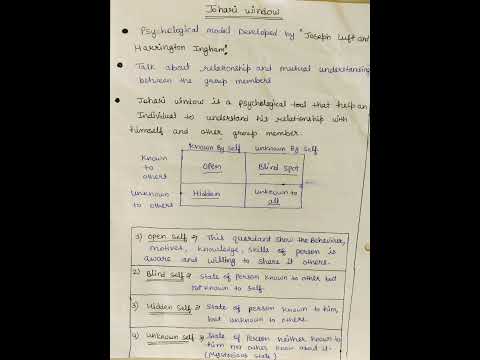 Johari window
Psychological model Developed by "Joseph Luft and
Harrington Ingham"
Talk about relationship and mutual understanding
between the group members
Johari window is a psychological tool that help an
Individual to understand his relationship with
himself and other group member.
Known By Self unknown By Self
Known to others
Open Blind Spot
Unknown to others
Hidden unknown to all
1) Open self → This quardant show the Behaviour,
motives, knowledge, skills of person is
aware and willing to share it others.
2) Blind self → State of person known to other but
not known to self.
3) Hidden self → State of person known to him,
but unknown to others.
4) unknown self → State of Person neither known to
him no other know about it.
(Mysterious state)